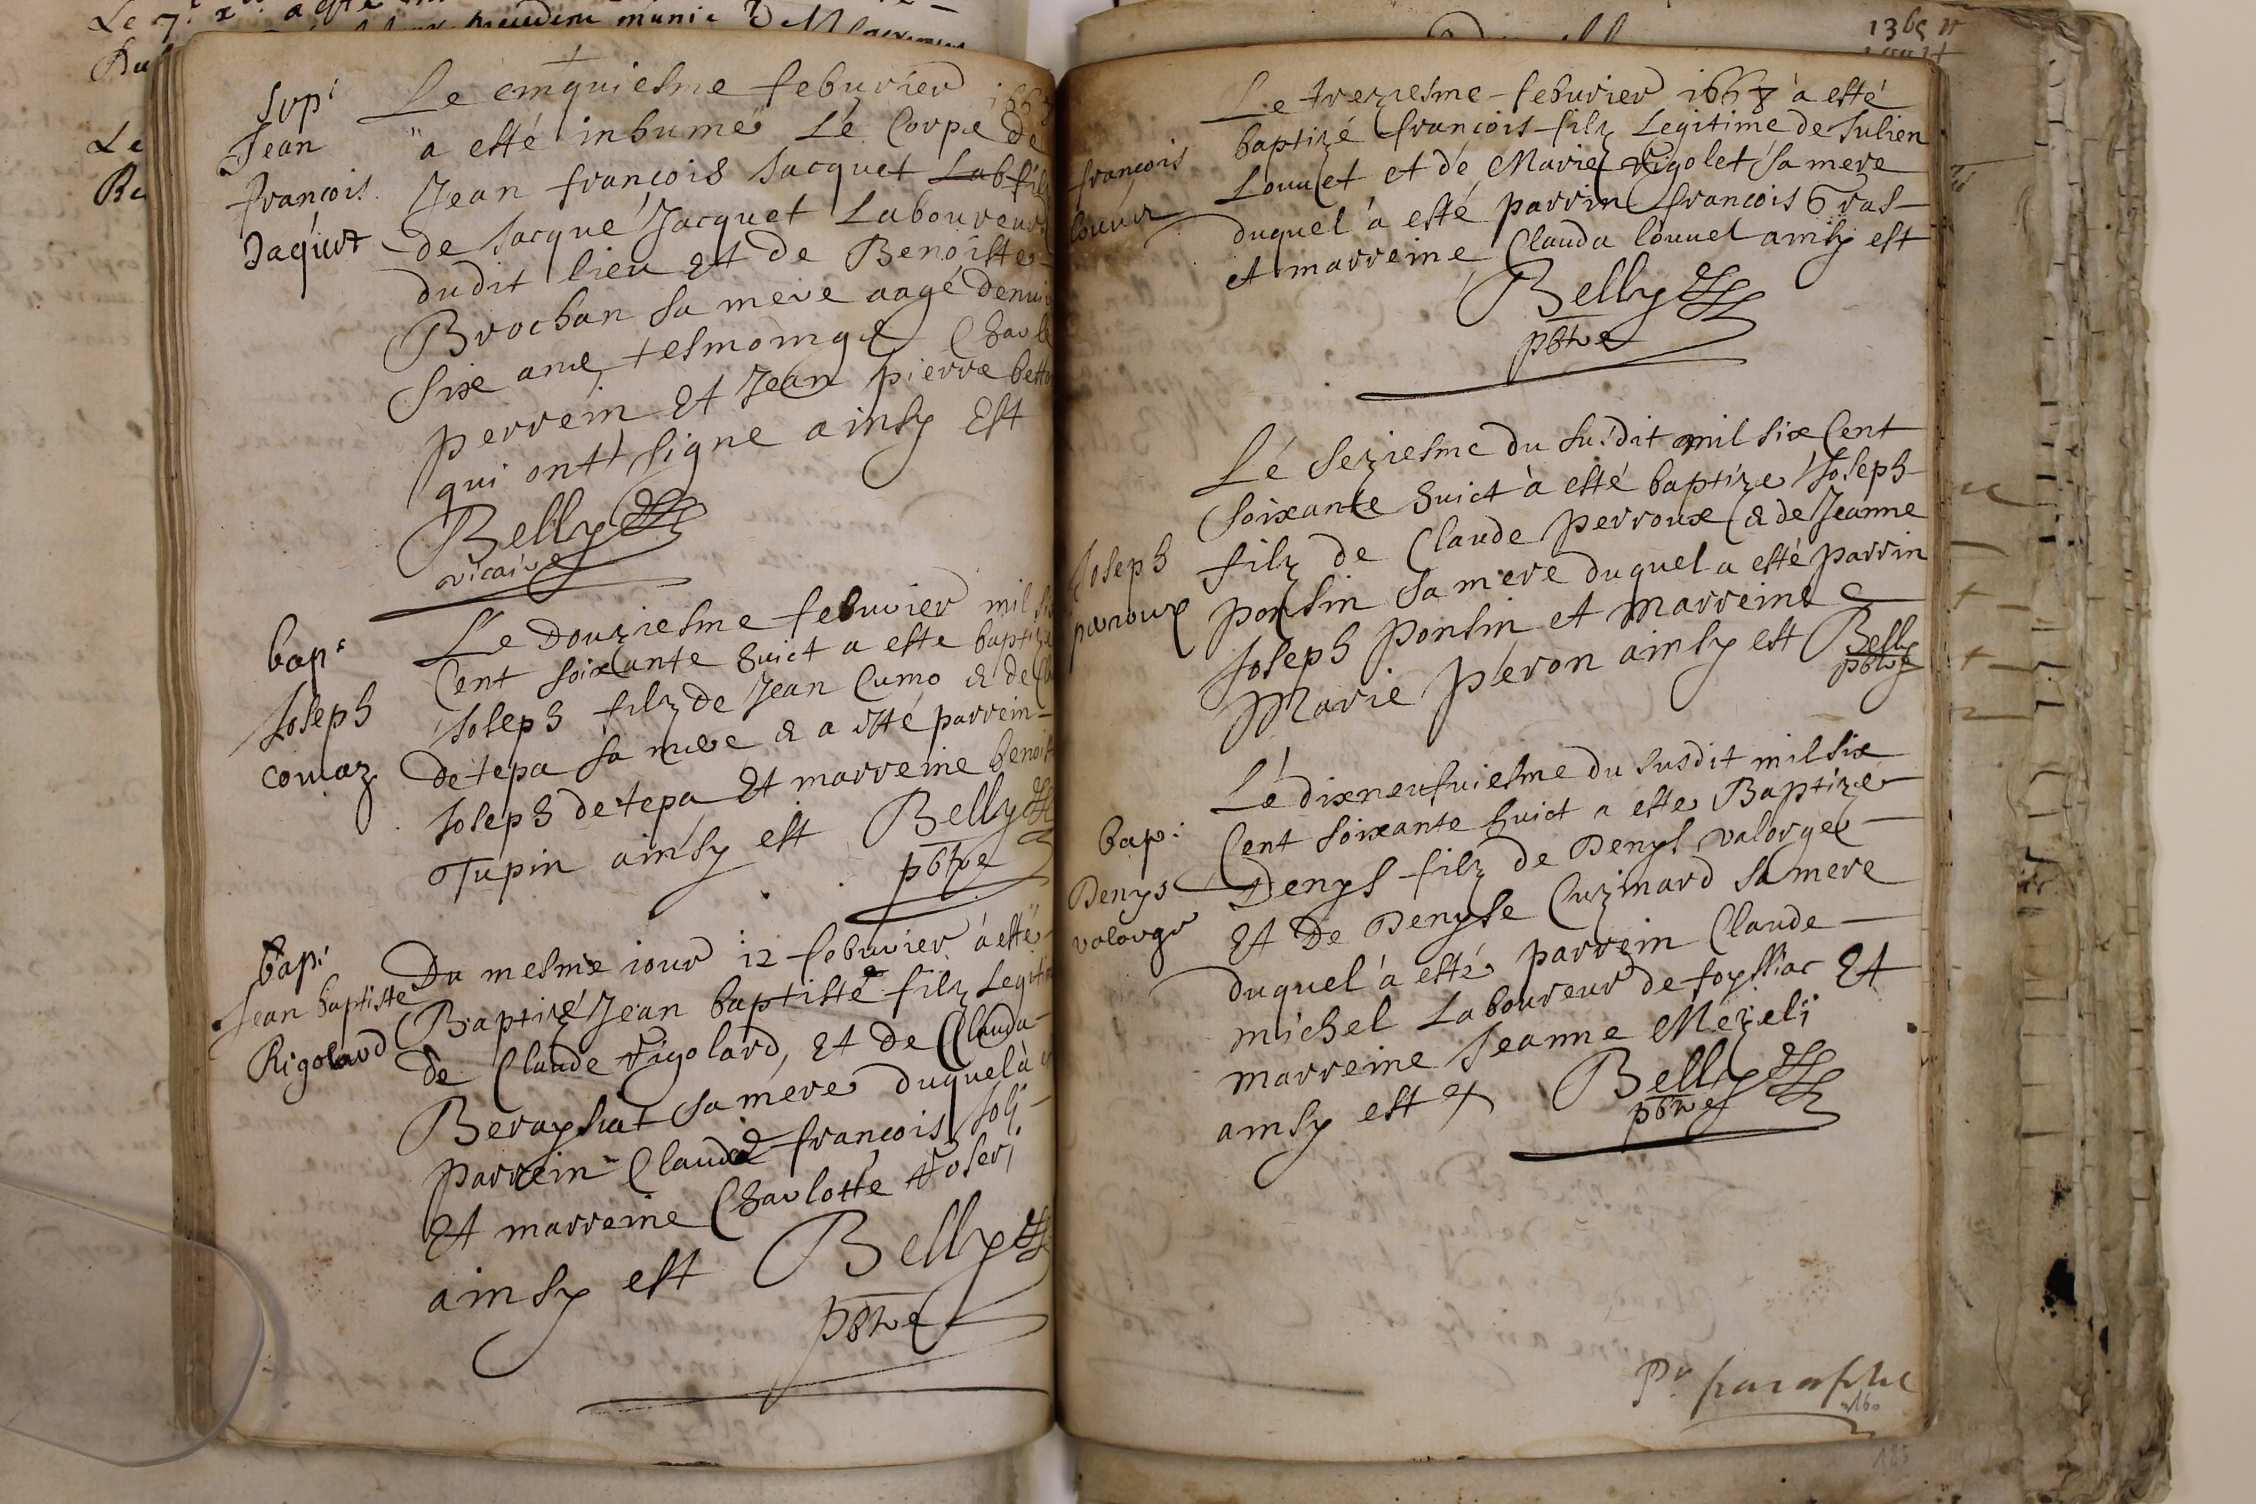 Sep:
Jean
françois
Jaquet
Le cinquiesme febvrier 1668
a esté inhumé Le Corps de
Jean françois Jacquet Lab fils
de Jacque Jacquet Laboureur
dudit lieu Et de Benoiste
Brochan sa mere aagé denui
six ans, tesmoings Charle
perrein Et Jean pierre bett
qui ontt signe ainsy Est
Belly
vicaire
bap:
Joseph
comaz
Le Douziesme febuvier mil six
Cent soixante huict a este baptize
Joseph filz de Jean Cumo & de Cla
detepa sa mere & a esté parrein
Joseph detepa Et marreine benoiste
Tupin ainsy est Belly
pbtre
bap:
Jean baptiste
Rigolard
Du mesme iour 12 febuvier á esté
Baptizé Jean baptiste filz Legitim
de Claude rigolard, Et de Clauda
Berayhat sa mere duquel à e
parrein Claude françois Joli
Et marreine Charlotte roseri
ainsy est Belly
pbtre
françois
louvet
Le treziesme febvrier 1668 à esté
baptizé françois filz Legitime de Julien
Louvet et dé Marie rigolet sa mere
duquel à esté parrin françois Gras
et marreine Clauda louvel ainsy est
Belly
pbtre
Joseph
peroux
Lé seziesme du susdit mil six Cent
soixante huict à esté baptize Joseph
filz de Claude perroux & de Jeanne
ponsin sa mere duquel a esté parrin
Joseph ponsin et marreine
Marie péron ainsy est Belly
pbtre
bap:
Denys
valorge
Lé dixneufuiesme du susdit mil six
Cent soixante huict a este Baptizé
Denys filz de Denys valorge
Et De Denyse Cuzinard sa mere
duquel à esté parrein Claude
michel Laboureur de foyssiac Et
marreine Jeanne Mézeli
ainsy est Belly
pbtre
Pr. paraphe